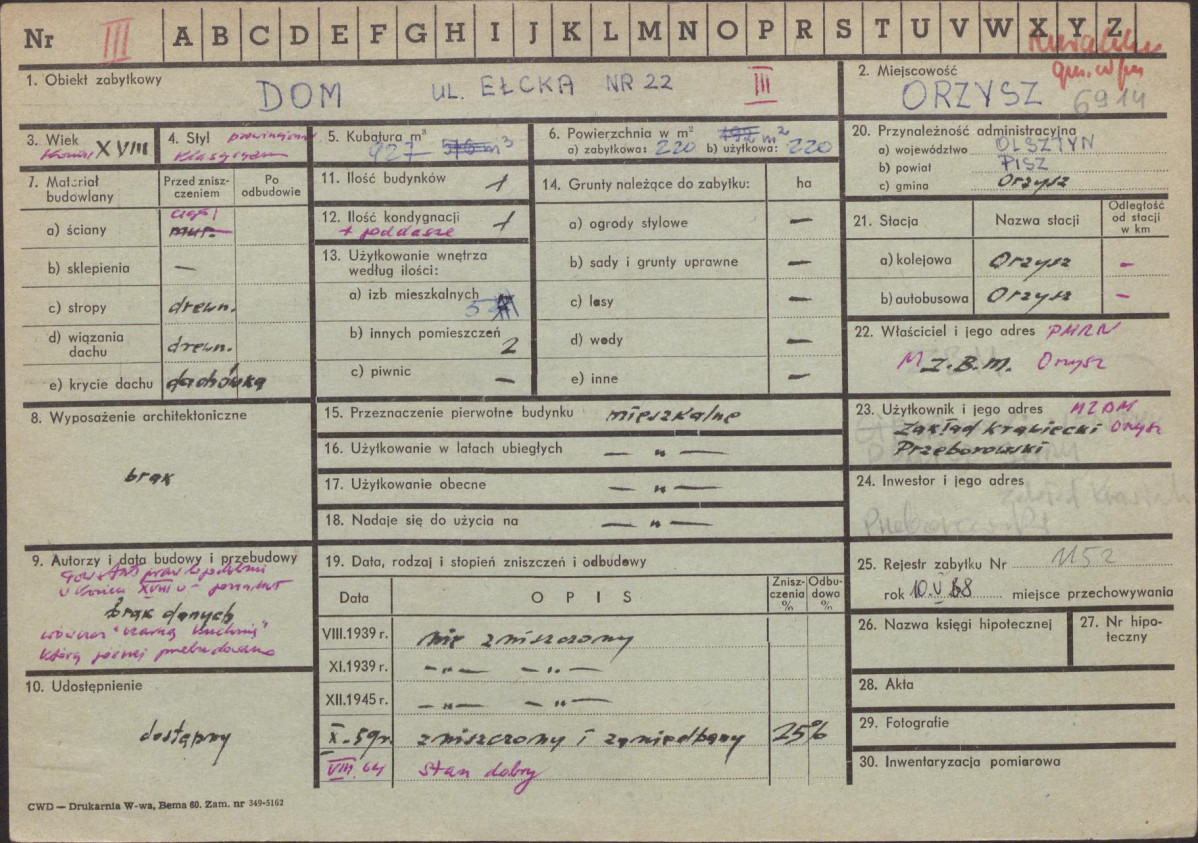 Nr III A B C D E F G H I J K L M N O P R S T U V W X Y Z
1. Obiekt zabytkowy
DOM UL. EŁCKA NR 22 III
2. Miejscowość
ORZYSZ 6914
3. Wiek
koniec XVIII
4. Styl
klasycyzm
5. Kubatura m³
927 576 m³
6. Powierzchnia w m²
a) zabytkowa: 220 b) użytkowa: 220
7. Materiał budowlany
Przed zniszczeniem
Po odbudowie
a) ściany mur.
b) sklepienia —
c) stropy drewn.
d) wiązania dachu drewn.
e) krycie dachu dachówka
8. Wyposażenie architektoniczne
brak
9. Autorzy i data budowy i przebudowy
prawdopodobnie
w końcu XVIII w -
brak danych
wówczas "czarną kuchnię"
którą później przebudowano
10. Udostępnienie
dostępny
11. Ilość budynków 1
12. Ilość kondygnacji 1
+ poddasze
13. Użytkowanie wnętrza według ilości:
a) izb mieszkalnych 5
b) innych pomieszczeń 2
c) piwnic —
14. Grunty należące do zabytku: ha
a) ogrody stylowe —
b) sady i grunty uprawne —
c) lasy —
d) wody —
e) inne —
15. Przeznaczenie pierwotne budynku mieszkalne
16. Użytkowanie w latach ubiegłych — " —
17. Użytkowanie obecne — " —
18. Nadaje się do użycia na — " —
19. Data, rodzaj i stopień zniszczeń i odbudowy
Data OPIS Zniszczenia % Odbudowa %
VIII.1939 r. nie zniszczony
XI.1939 r. — " — — " —
XII.1945 r. — " — — " —
X. 59r. zniszczony i zaniedbany 25%
VIII. 64 stan dobry
20. Przynależność administracyjna
a) województwo OLSZTYN
b) powiat PISZ
c) gmina Orzysz
21. Stacja
Nazwa stacji
Odległość od stacji w km
a) kolejowa Orzysz —
b) autobusowa Orzysz —
22. Właściciel i jego adres PMRN
M Z.B.M. Orzysz
23. Użytkownik i jego adres MZBM
Zakład krawiecki Orzysz
Przeborowski
24. Inwestor i jego adres
25. Rejestr zabytku Nr 1152
rok 10.V 68 miejsce przechowywania
26. Nazwa księgi hipotecznej
27. Nr hipoteczny
28. Akta
29. Fotografie
30. Inwentaryzacja pomiarowa
CWD — Drukarnia W-wa, Bema 60. Zam. nr 349-5162